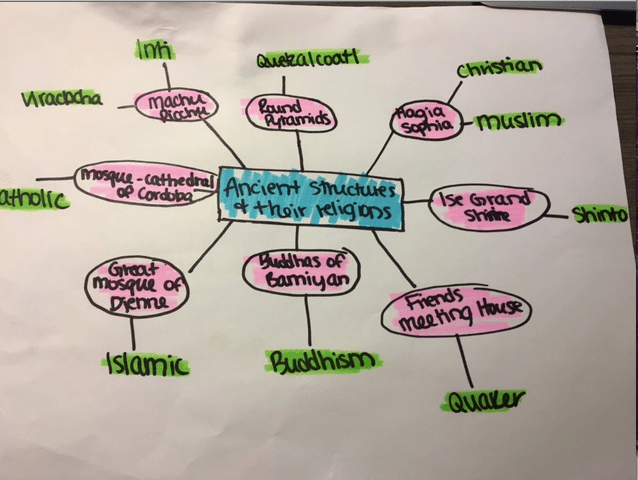 Inti
Quetzalcoatl
Christian
Viracocha
Machu
Picchu
Round
Pyramids
Hagia
Sophia
muslim
mosque-cathedral
of Cordoba
atholic
Ancient structures
& their religions
Ise Grand
Shrine
Shinto
Great
mosque of
Djenne
Buddhas of
Bamiyan
Friends
meeting House
Islamic
Buddhism
Quaker